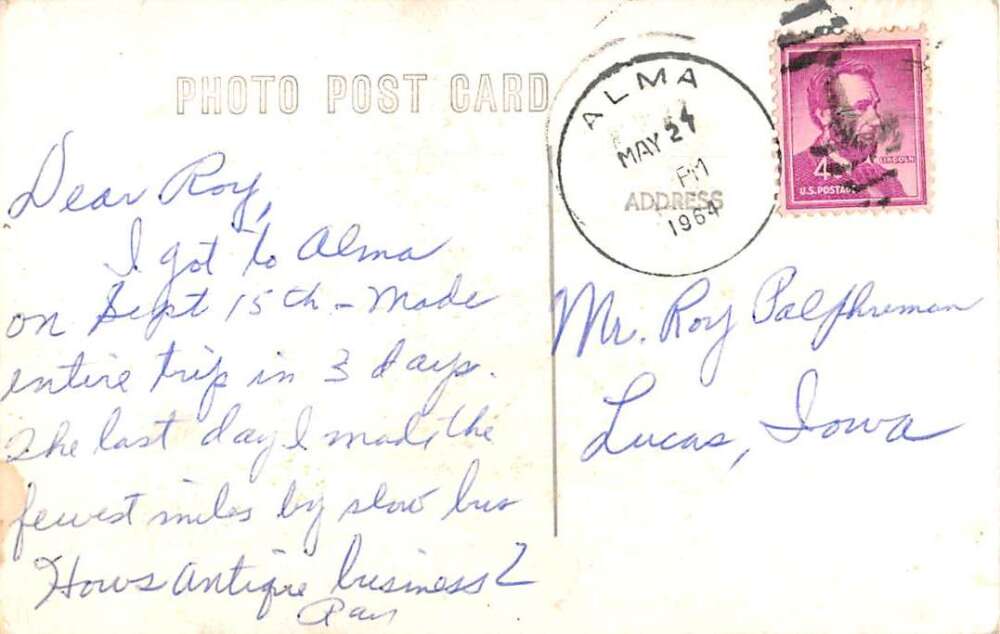 PHOTO POST CARD
ALMA
MAY 24
PM
ADDRESS
1964
4¢
LINCOLN
U.S. POSTAGE
Dear Roy,
I got to Alma
on Sept 15th - Made
entire trip in 3 days.
The last day I made the
fewest miles by slow bus
Hows Antique business?
Mr. Roy Palphreman
Lucas, Iowa